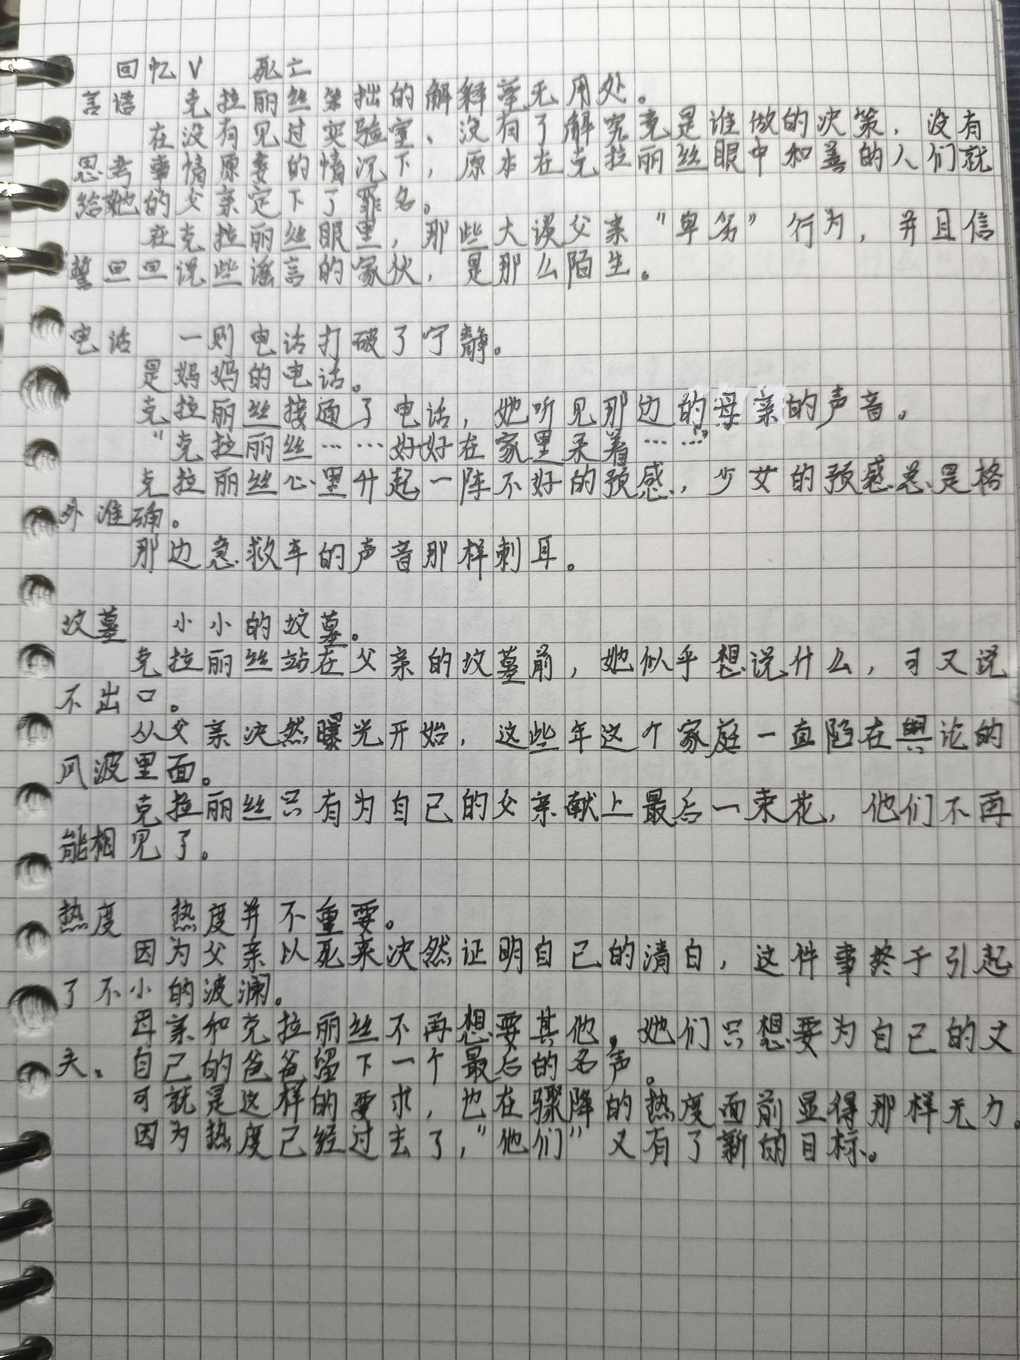 回忆V 死亡
言语 克拉丽丝笨拙的解释毫无用处。
在没有见过实验室、没有了解究竟是谁做的决策，没有
思考事情原委的情况下，原本在克拉丽丝眼中和善的人们就
给她的父亲定下了罪名。
在克拉丽丝眼里，那些大谈父亲“卑劣”行为，并且信
誓旦旦说些谣言的家伙，是那么陌生。
电话 一则电话打破了宁静。
是妈妈的电话。
克拉丽丝接通了电话，她听见那边的母亲的声音。
“克拉丽丝……好好在家里呆着……”
克拉丽丝心里升起一阵不好的预感，少女的预感总是格
外准确。
那边急救车的声音那样刺耳。
坟墓 小小的坟墓。
克拉丽丝站在父亲的坟墓前，她似乎想说什么，可又说
不出口。
从父亲决然曝光开始，这些年这个家庭一直陷在舆论的
风波里面。
克拉丽丝只有为自己的父亲献上最后一束花，他们不再
能相见了。
热度 热度并不重要。
因为父亲以死来决然证明自己的清白，这件事终于引起
了不小的波澜。
母亲和克拉丽丝不再想要其他，她们只想要为自己的丈
夫、自己的爸爸留下一个最后的名声。
可就是这样的要求，也在骤降的热度面前显得那样无力。
因为热度已经过去了，“他们”又有了新的目标。